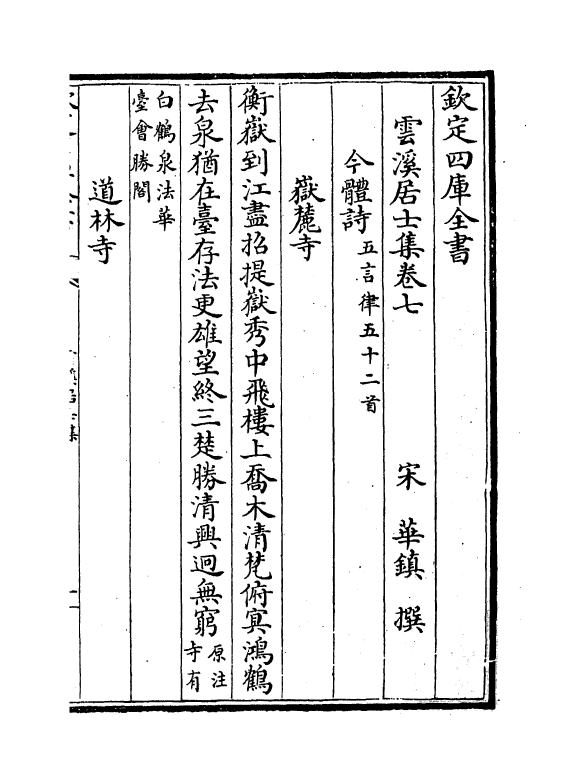 欽定四庫全書
雲溪居士集卷七　宋　華鎮　撰
今體詩五言律五十二首
嶽麓寺
衡嶽到江盡招提嶽秀中飛樓上喬木清梵俯冥鴻鶴
去泉猶在臺存法更雄望終三楚勝清興迥無窮原注寺有
白鶴泉法華臺會勝閣
道林寺